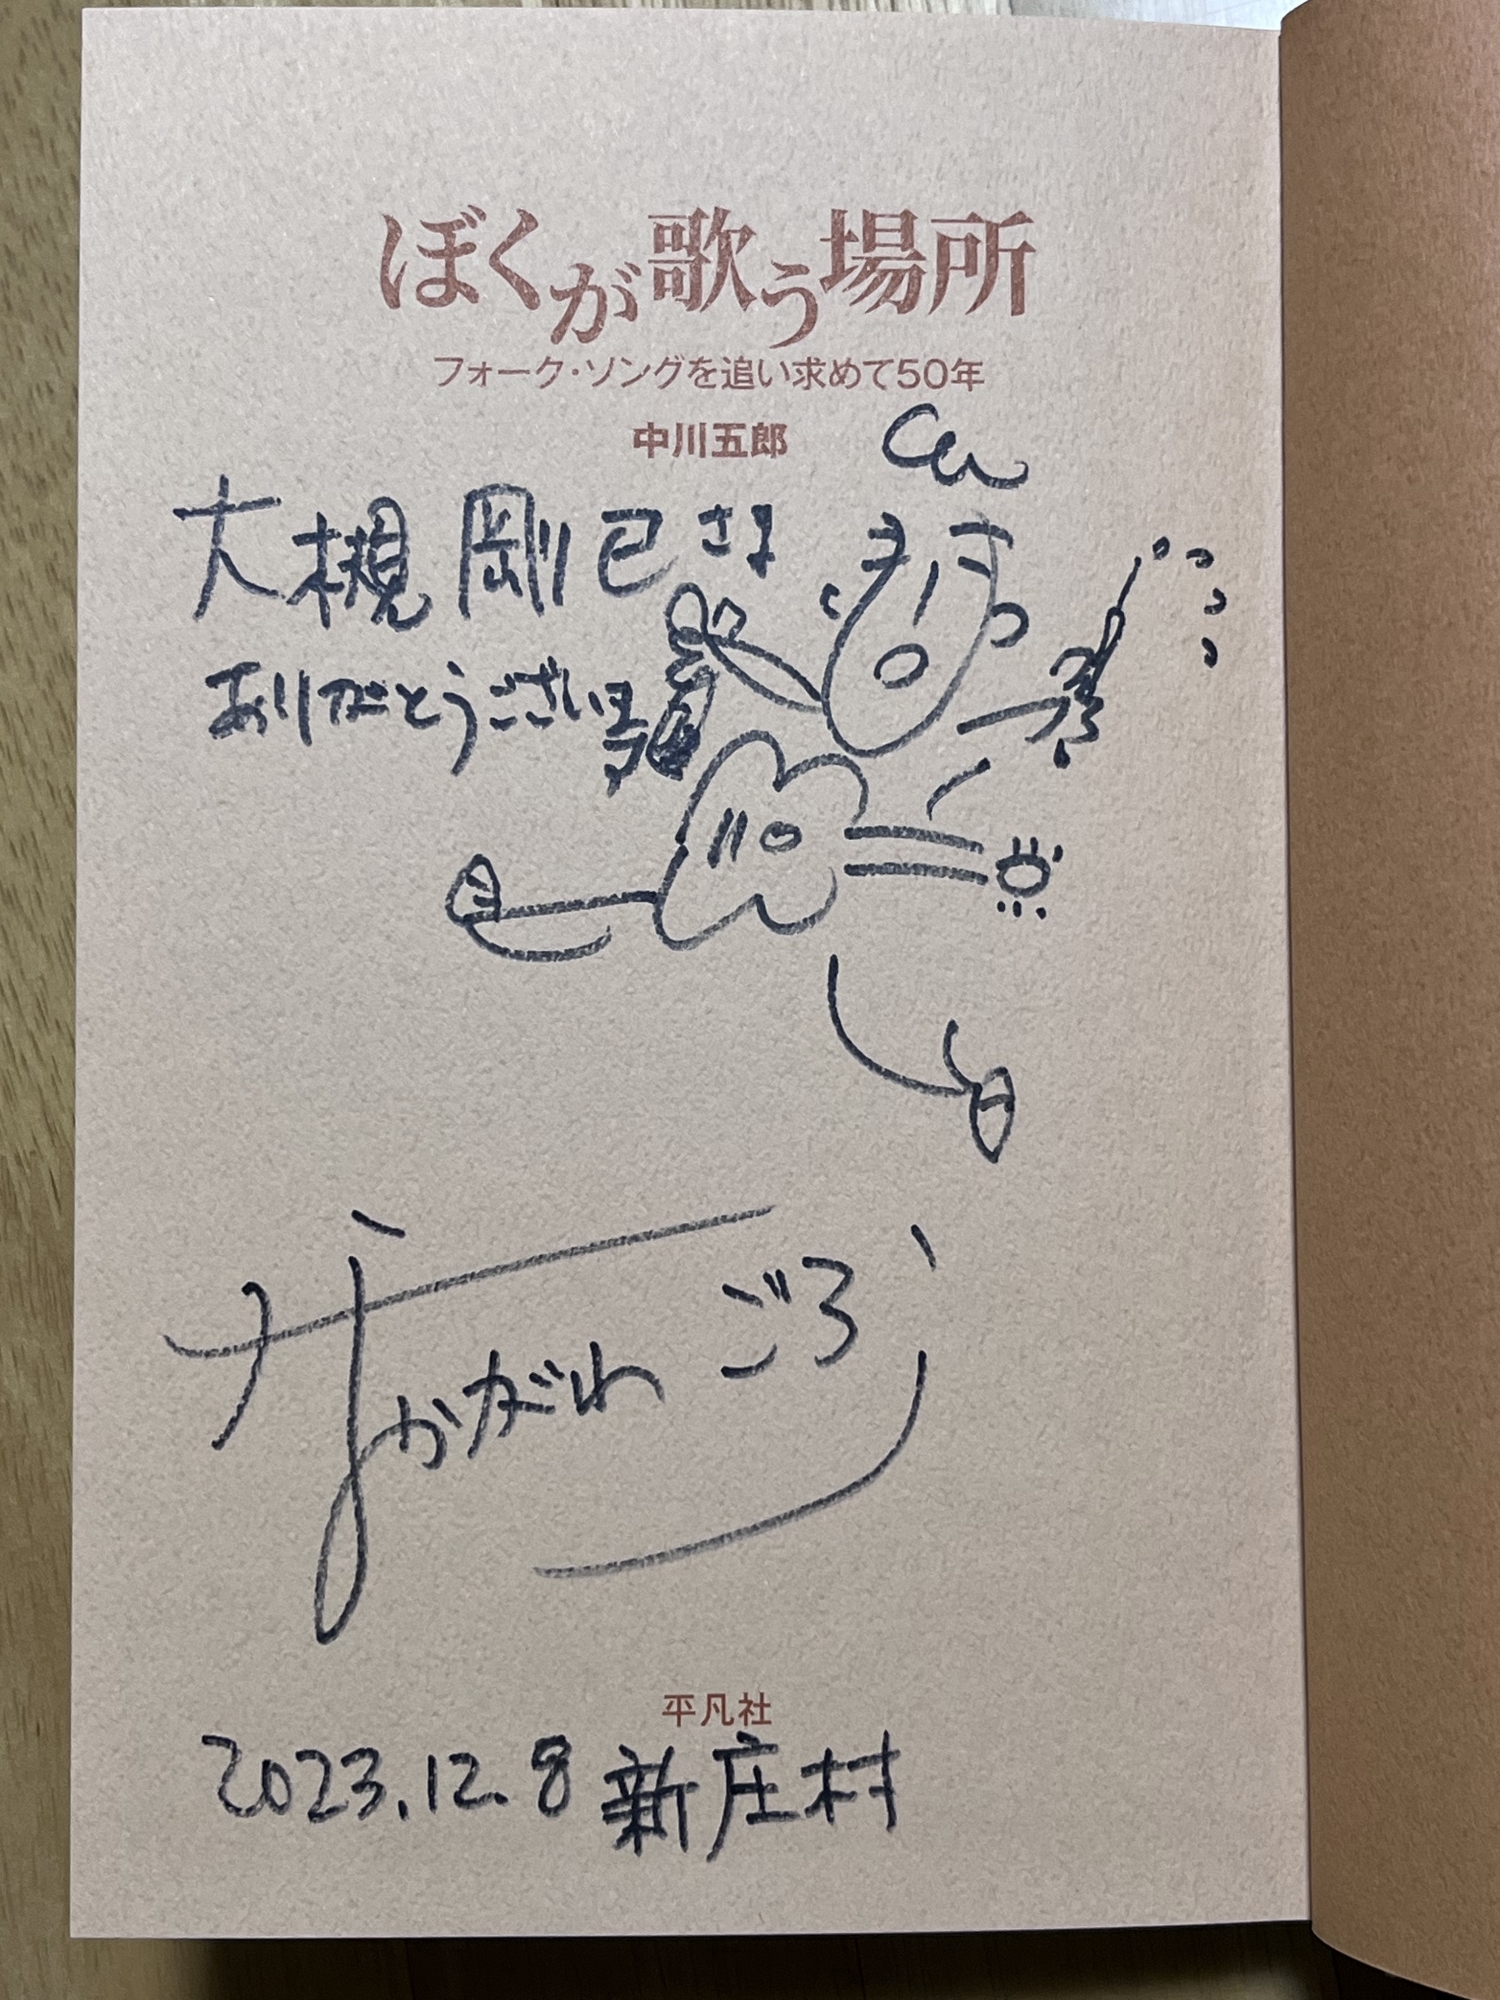 ぼくが歌う場所
フォーク・ソングを追い求めて50年
中川五郎
大槻剛巳さま
ありがとうございます
なかがわ ごろう
平凡社
2023.12.8 新庄村